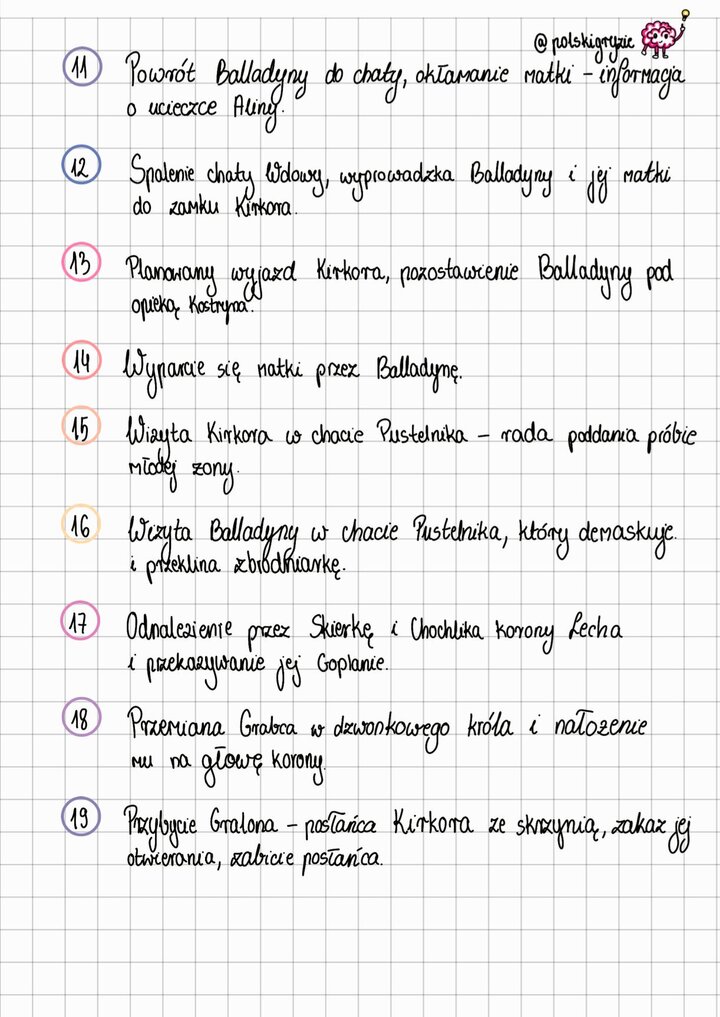 @polskigryzie
11 Powrót Balladyny do chaty, okłamanie matki – informacja
o ucieczce Aliny.
12 Spalenie chaty Wdowy, wyprowadzka Balladyny i jej matki
do zamku Kirkora.
13 Planowany wyjazd Kirkora, pozostawienie Balladyny pod
opieką Kostryna.
14 Wyparcie się matki przez Balladynę.
15 Wizyta Kirkora w chacie Pustelnika – rada poddania próbie
młodej żony.
16 Wizyta Balladyny w chacie Pustelnika, który demaskuje
i przeklina zbrodniarkę.
17 Odnalezienie przez Skierkę i Chochlika korony Lecha
i przekazywanie jej Goplanie.
18 Przemiana Grabca w dzwonkowego króla i nałożenie
mu na głowę korony.
19 Przybycie Gralona – posłańca Kirkora ze skrzynią, zakaz jej
otwierania, zabicie posłańca.